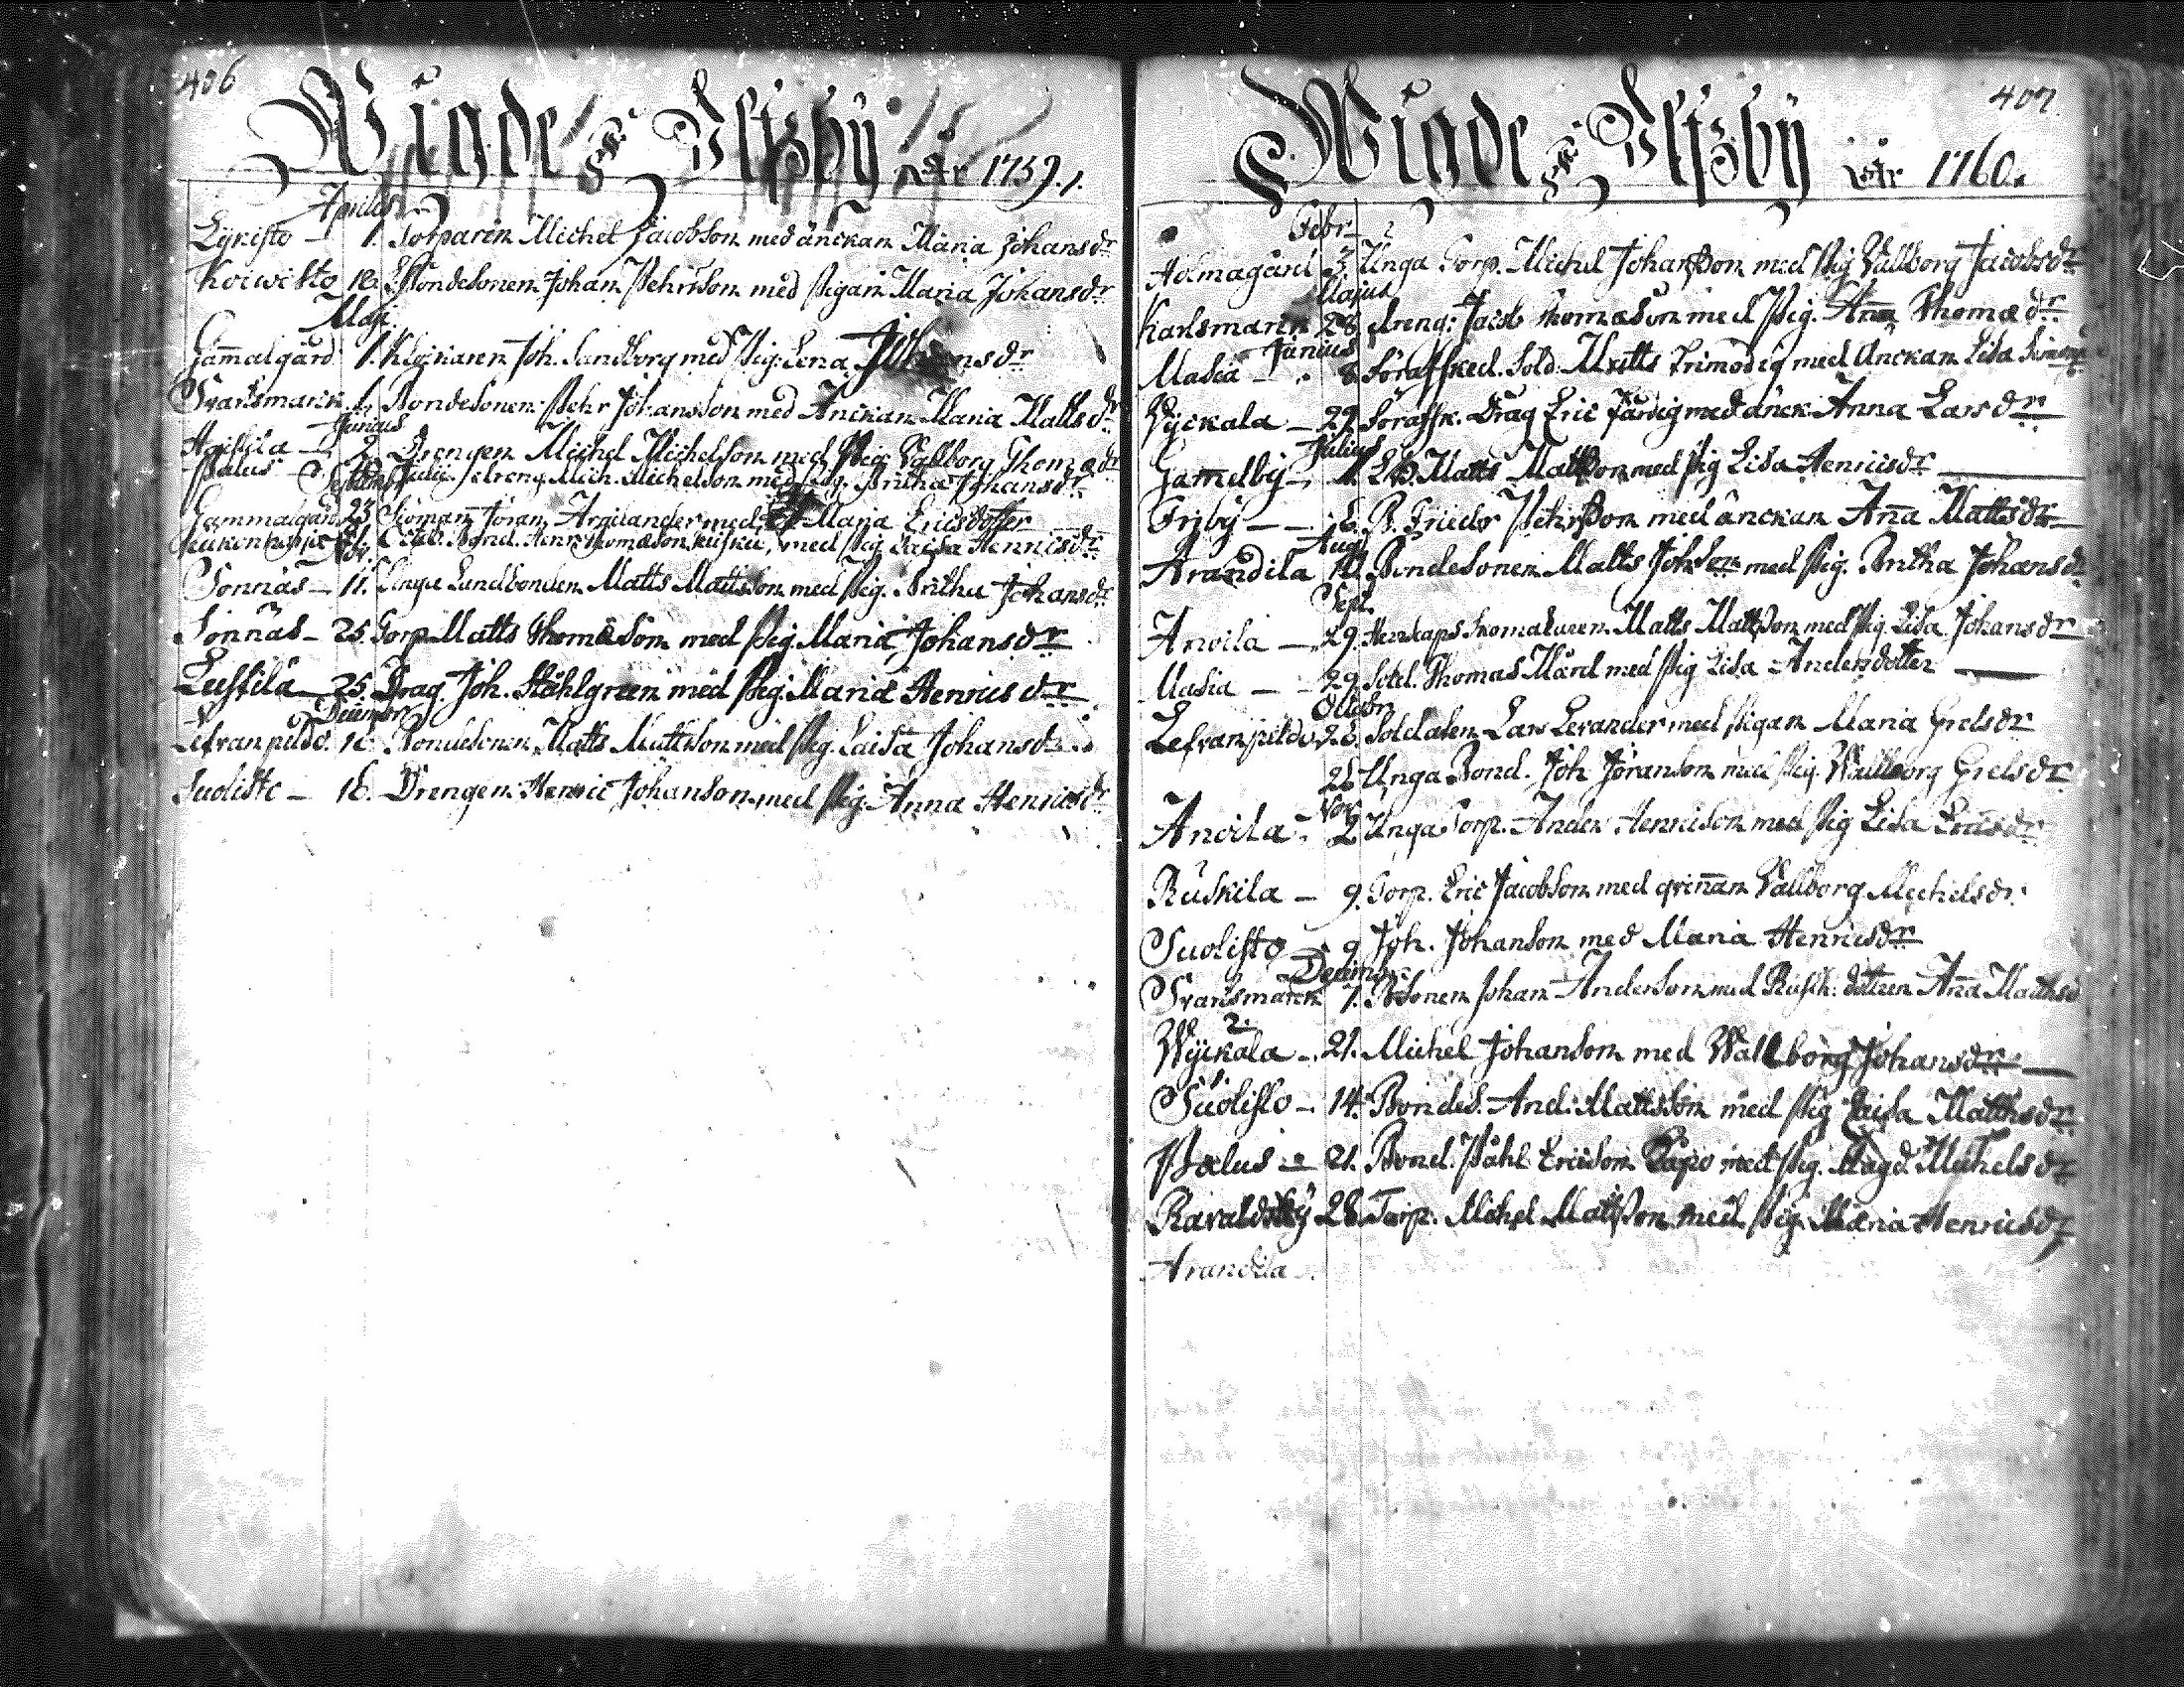 406
Wigde Ulfzby åhr 1759.
Aprilis
Lyksto 1. Torparen Michel Jacobson med änckan Maria Johansdr
Koiwisto 18. Bondesonen Johan Pehrson med Pigan Maria Johansdr
Maji
Gam̅algård 1. Joh. Sandberg med Pig. Lena
Svartsmark 1. Bondesonen Pehr Johansson med Änckan Maria Mattsdr
Junius
2. Drengen Michel Michelson med Pig. Vallborg Thomædr
Palus Julij. dreng. Mich. Michelson med Pig. Britha Johansdr
Septembr
Gammalgård 23. Göran Argelander med Maria Ericsdotter
Henr. Thomæson med Pig. Caisa Henricsdr
Sonnäs 11. Unga Landbonden Matts Mattsson med Pig. Britha Johansdr
Sonnäs 25. Torp. Matts Thomæson med Pig. Maria Johansdr
Leistilä 25. Drag. Joh. Ståhlgreen med Pig. Maria Henricsdr
Decembr
Lefranpeldo. 16. Bondesonen Matts Mattsson med Pig. Caisa Johansdr
Suolisto 16. Drengen Henric Johanson med Pig. Anna Henricsdr
407
Wigde Ulfzby åhr 1760.
Febr.
Holmagård 3. Unga Torp. Michel Johansson med Pig. Vallborg Jacobsdr
Majus
Karlsmarck 26. dreng: Jacob Thomæson med Pig. An̅a Thomædr
Junius
Masia 8. Förafsked. Sold. Matts Frimodig med Änckan Lisa
Wyckala 29. Förafsk. Drag. Eric Färdig med änck. Anna Larsdr
Julius
Gamelby Matts Mattsson med Pig. Lisa Henricsdr
Friby 6. B. Pehrsson med änckan An̅a Mattsdr
Aug.
Arandila 10. Bondesonen Matts Johson med Pig. Britha Johansdr
Sept.
Anoila 29. Herrskaps Skomakaren Matts Mattsson med Pig. Lisa Johansdr
Masia 29. Sold. Thomas Mård med Pig. Lisa Andersdotter
Octobr
Lefranpeldo 26. Soldaten Lars Levander med Pigan Maria Grelsdr
26. Unga Bond. Joh Jöranson med Pig. Wallborg Grelsdr
Nov.
Anoila 2. Unga Torp. Anders Henricson med Pig. Lisa Ericsdr
Ruskila 9. Torp. Eric Jacobson med qvin̅an Vallborg Michelsdr
Suolisto 9. Joh. Johanson med Maria Henricsdr
Decembr
Svartsmarck 7. B.sonen Johan Anderson med Rusth. dottren An̅a Mattsdr
Wyckala 21. Michel Johanson med Wallborg Johansdr
Suolisto 14. Bondes. And. Mattsson med Pig. Caisa Matthsdr
Palus 21. Bond. Påhl Ericson Papo med Pig. Magd. Michelsdr
Ravaldsby 28. Torp. Michel Mattsson med Pig. Maria Henricsdr
Arandila